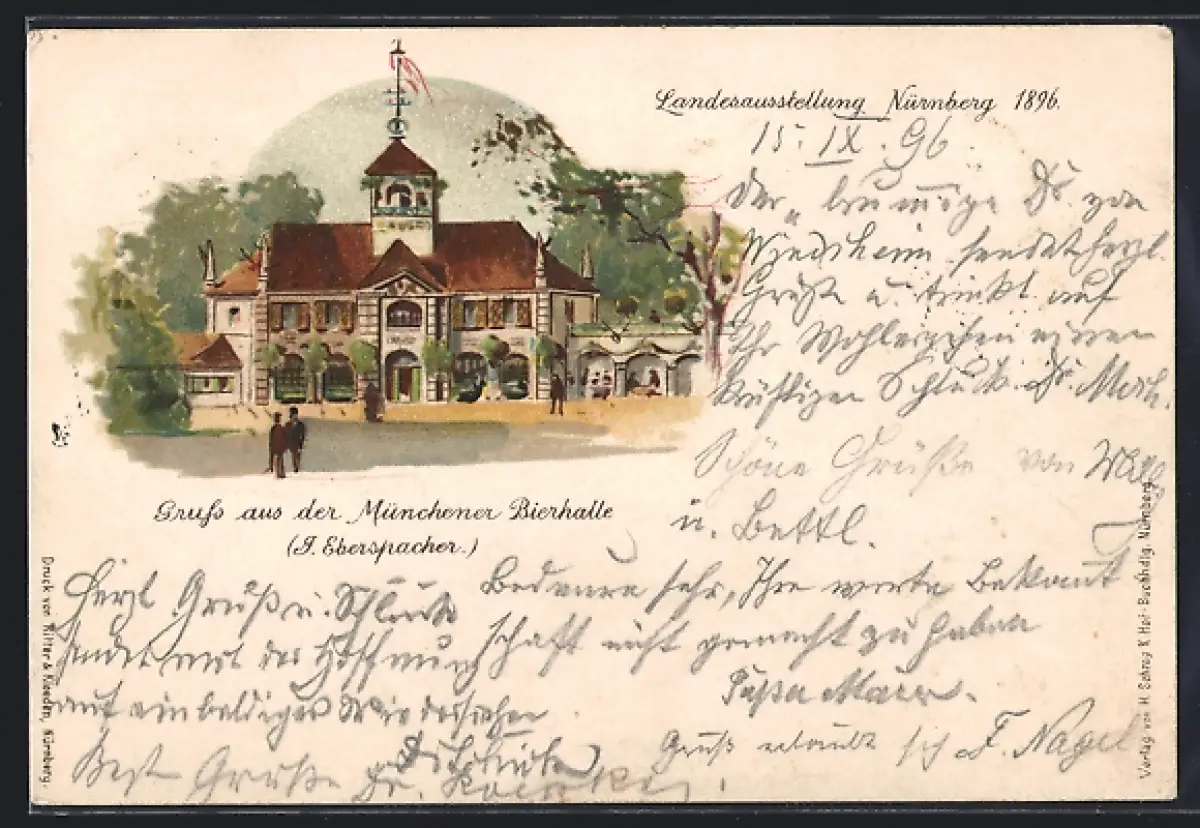 Landesausstellung Nürnberg 1896.
15. IX. 96.
Der „brummige Dr. von
Windsheim sendet herzl.
Grüße u. trinkt auf
Ihr Wohlergehen einen
kräftigen Schluck. Dr.
Schöne Grüße von
u. Bettl.
Gruß aus der Münchener Bierhalle
(J. Eberspacher.)
Herzl Gruß u. Schluck
sendet mit der Hoffnung
auf ein baldiges Wiedersehen
Bedaure sehr, Ihre werte Bekannt
schaft nicht gemacht zu haben
Gruß erlaubt sich F. Nagel
Best Grüße Dr.
Druck von Ritter & Kloeden, Nürnberg.
Verlag von H. Schrag K. Hof-Buchhdlg. Nürnberg.